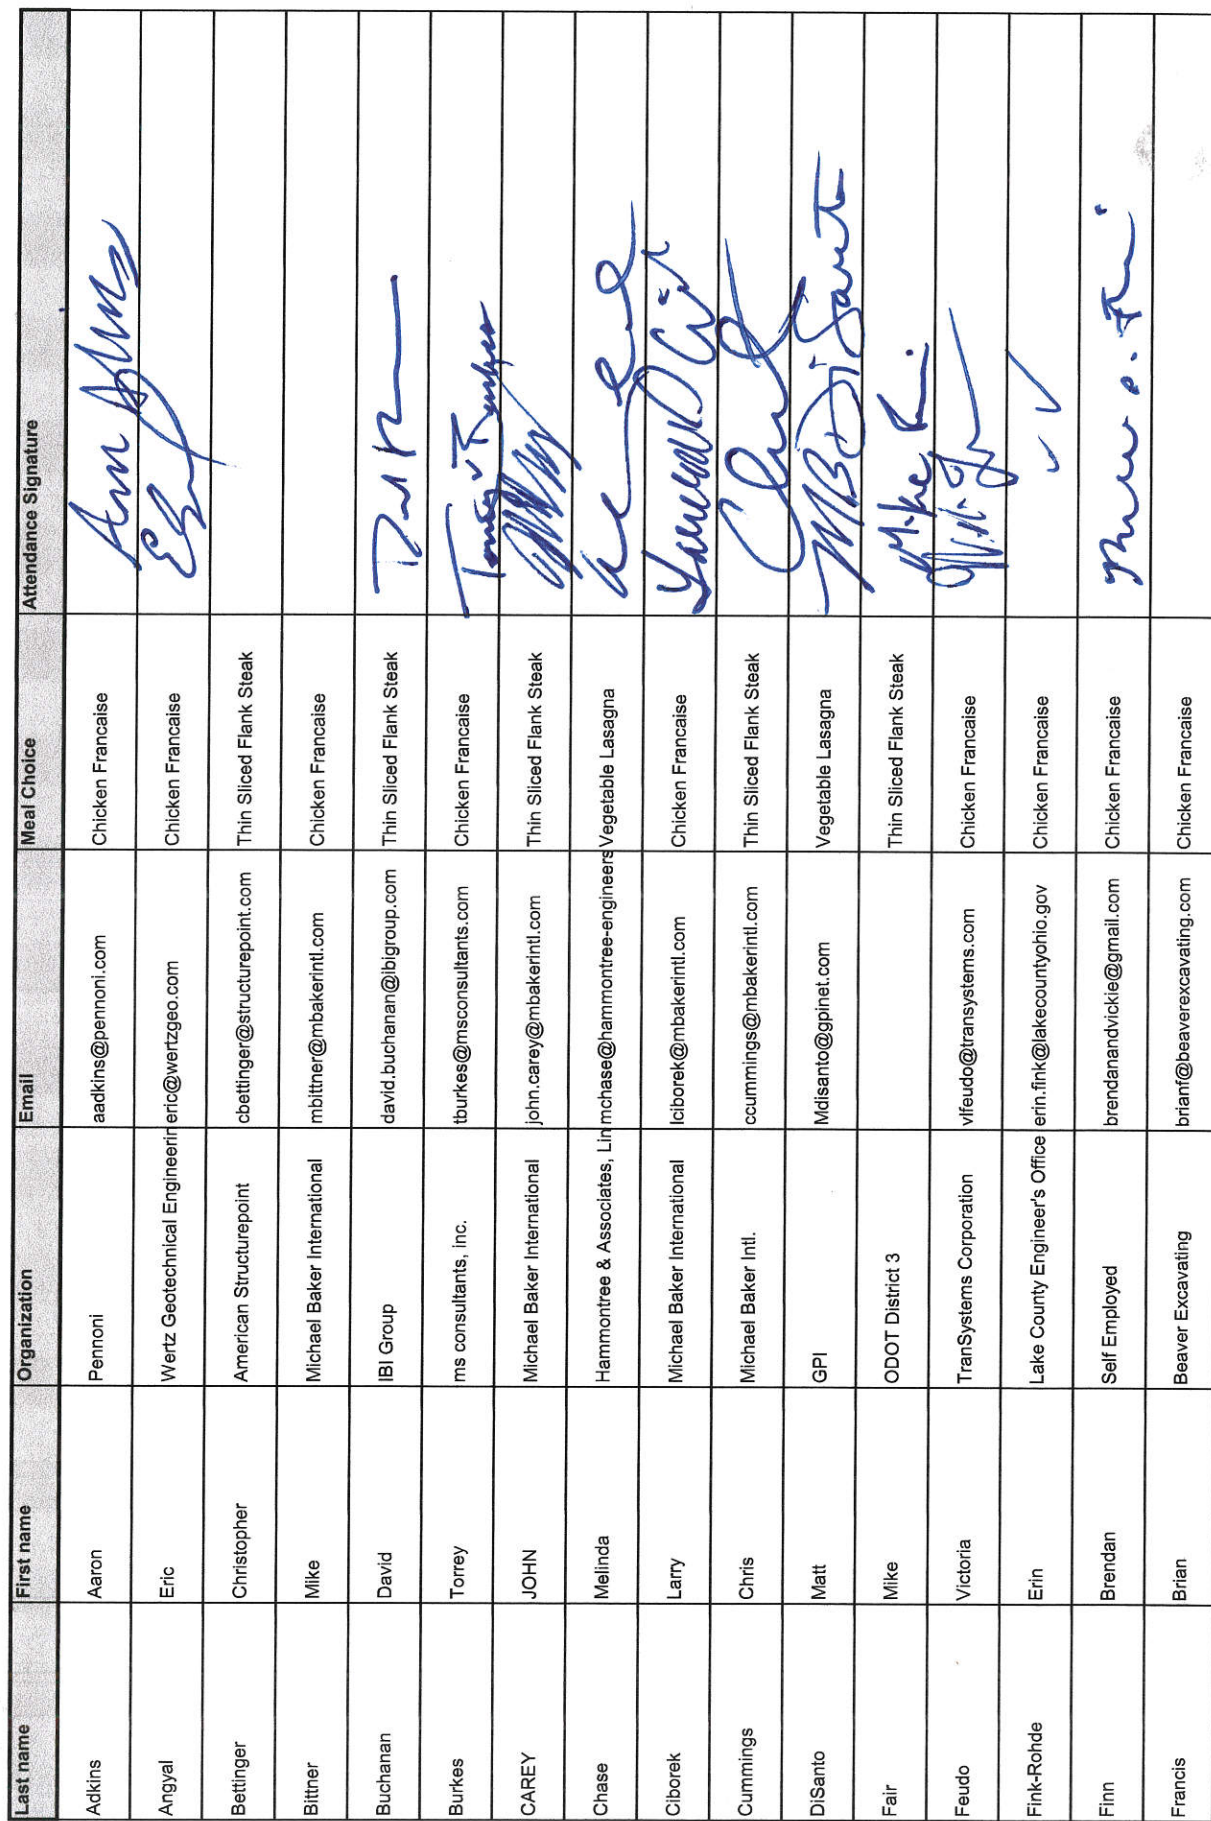 Last name First name Organization Email Meal Choice Attendance Signature
Adkins Aaron Pennoni aadkins@pennoni.com Chicken Francaise
Angyal Eric Wertz Geotechnical Engineerin eric@wertzgeo.com Chicken Francaise
Bettinger Christopher American Structurepoint cbettinger@structurepoint.com Thin Sliced Flank Steak
Bittner Mike Michael Baker International mbittner@mbakerintl.com Chicken Francaise
Buchanan David IBI Group david.buchanan@ibigroup.com Thin Sliced Flank Steak
Burkes Torrey ms consultants, inc. tburkes@msconsultants.com Chicken Francaise
CAREY JOHN Michael Baker International john.carey@mbakerintl.com Thin Sliced Flank Steak
Chase Melinda Hammontree & Associates, Lin mchase@hammontree-engineers Vegetable Lasagna
Ciborek Larry Michael Baker International lciborek@mbakerintl.com Chicken Francaise
Cummings Chris Michael Baker Intl. ccummings@mbakerintl.com Thin Sliced Flank Steak
DiSanto Matt GPI Mdisanto@gpinet.com Vegetable Lasagna MB DiSanto
Fair Mike ODOT District 3 Thin Sliced Flank Steak Mike
Feudo Victoria TranSystems Corporation vlfeudo@transystems.com Chicken Francaise
Fink-Rohde Erin Lake County Engineer's Office erin.fink@lakecountyohio.gov Chicken Francaise
Finn Brendan Self Employed brendanandvickie@gmail.com Chicken Francaise
Francis Brian Beaver Excavating brianf@beaverexcavating.com Chicken Francaise